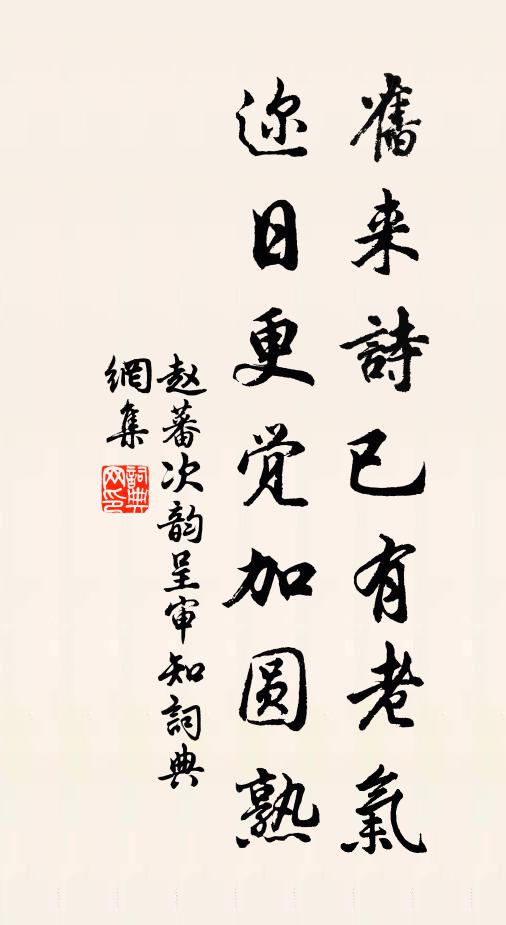 舊来詩已有老氣
迩日更觉加圆熟
赵蕃次韵呈审知詞典
網集
詞典網印